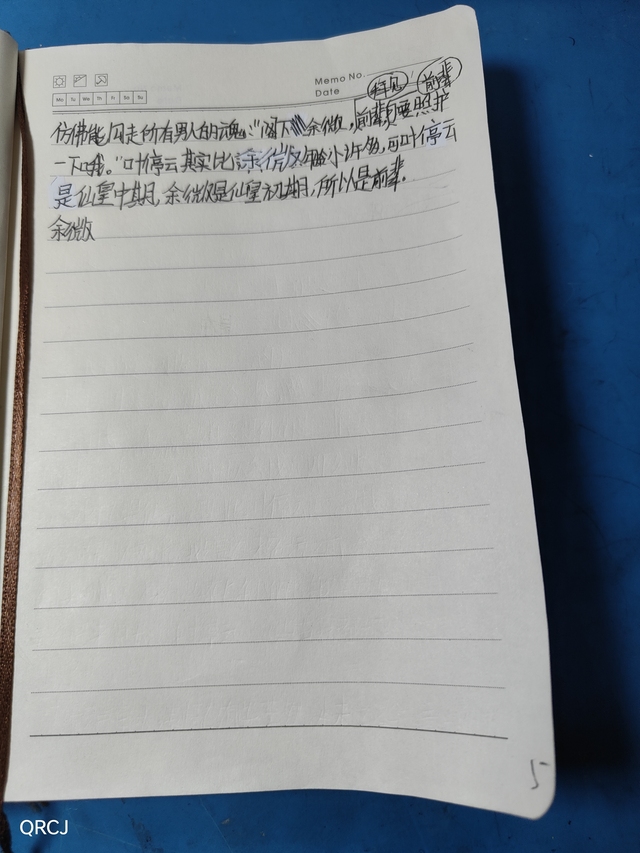 Memo No.
Date
Mo Tu We Th Fr Sa Su
拜见 前辈
仿佛能勾走所有男人的魂。"阁下余微,前辈要照护
一下哦。"叶停云其实比余微年龄小许多,可叶停云
是仙皇中期,余微是仙皇初期,所以是前辈.
余微
5
QRCJ